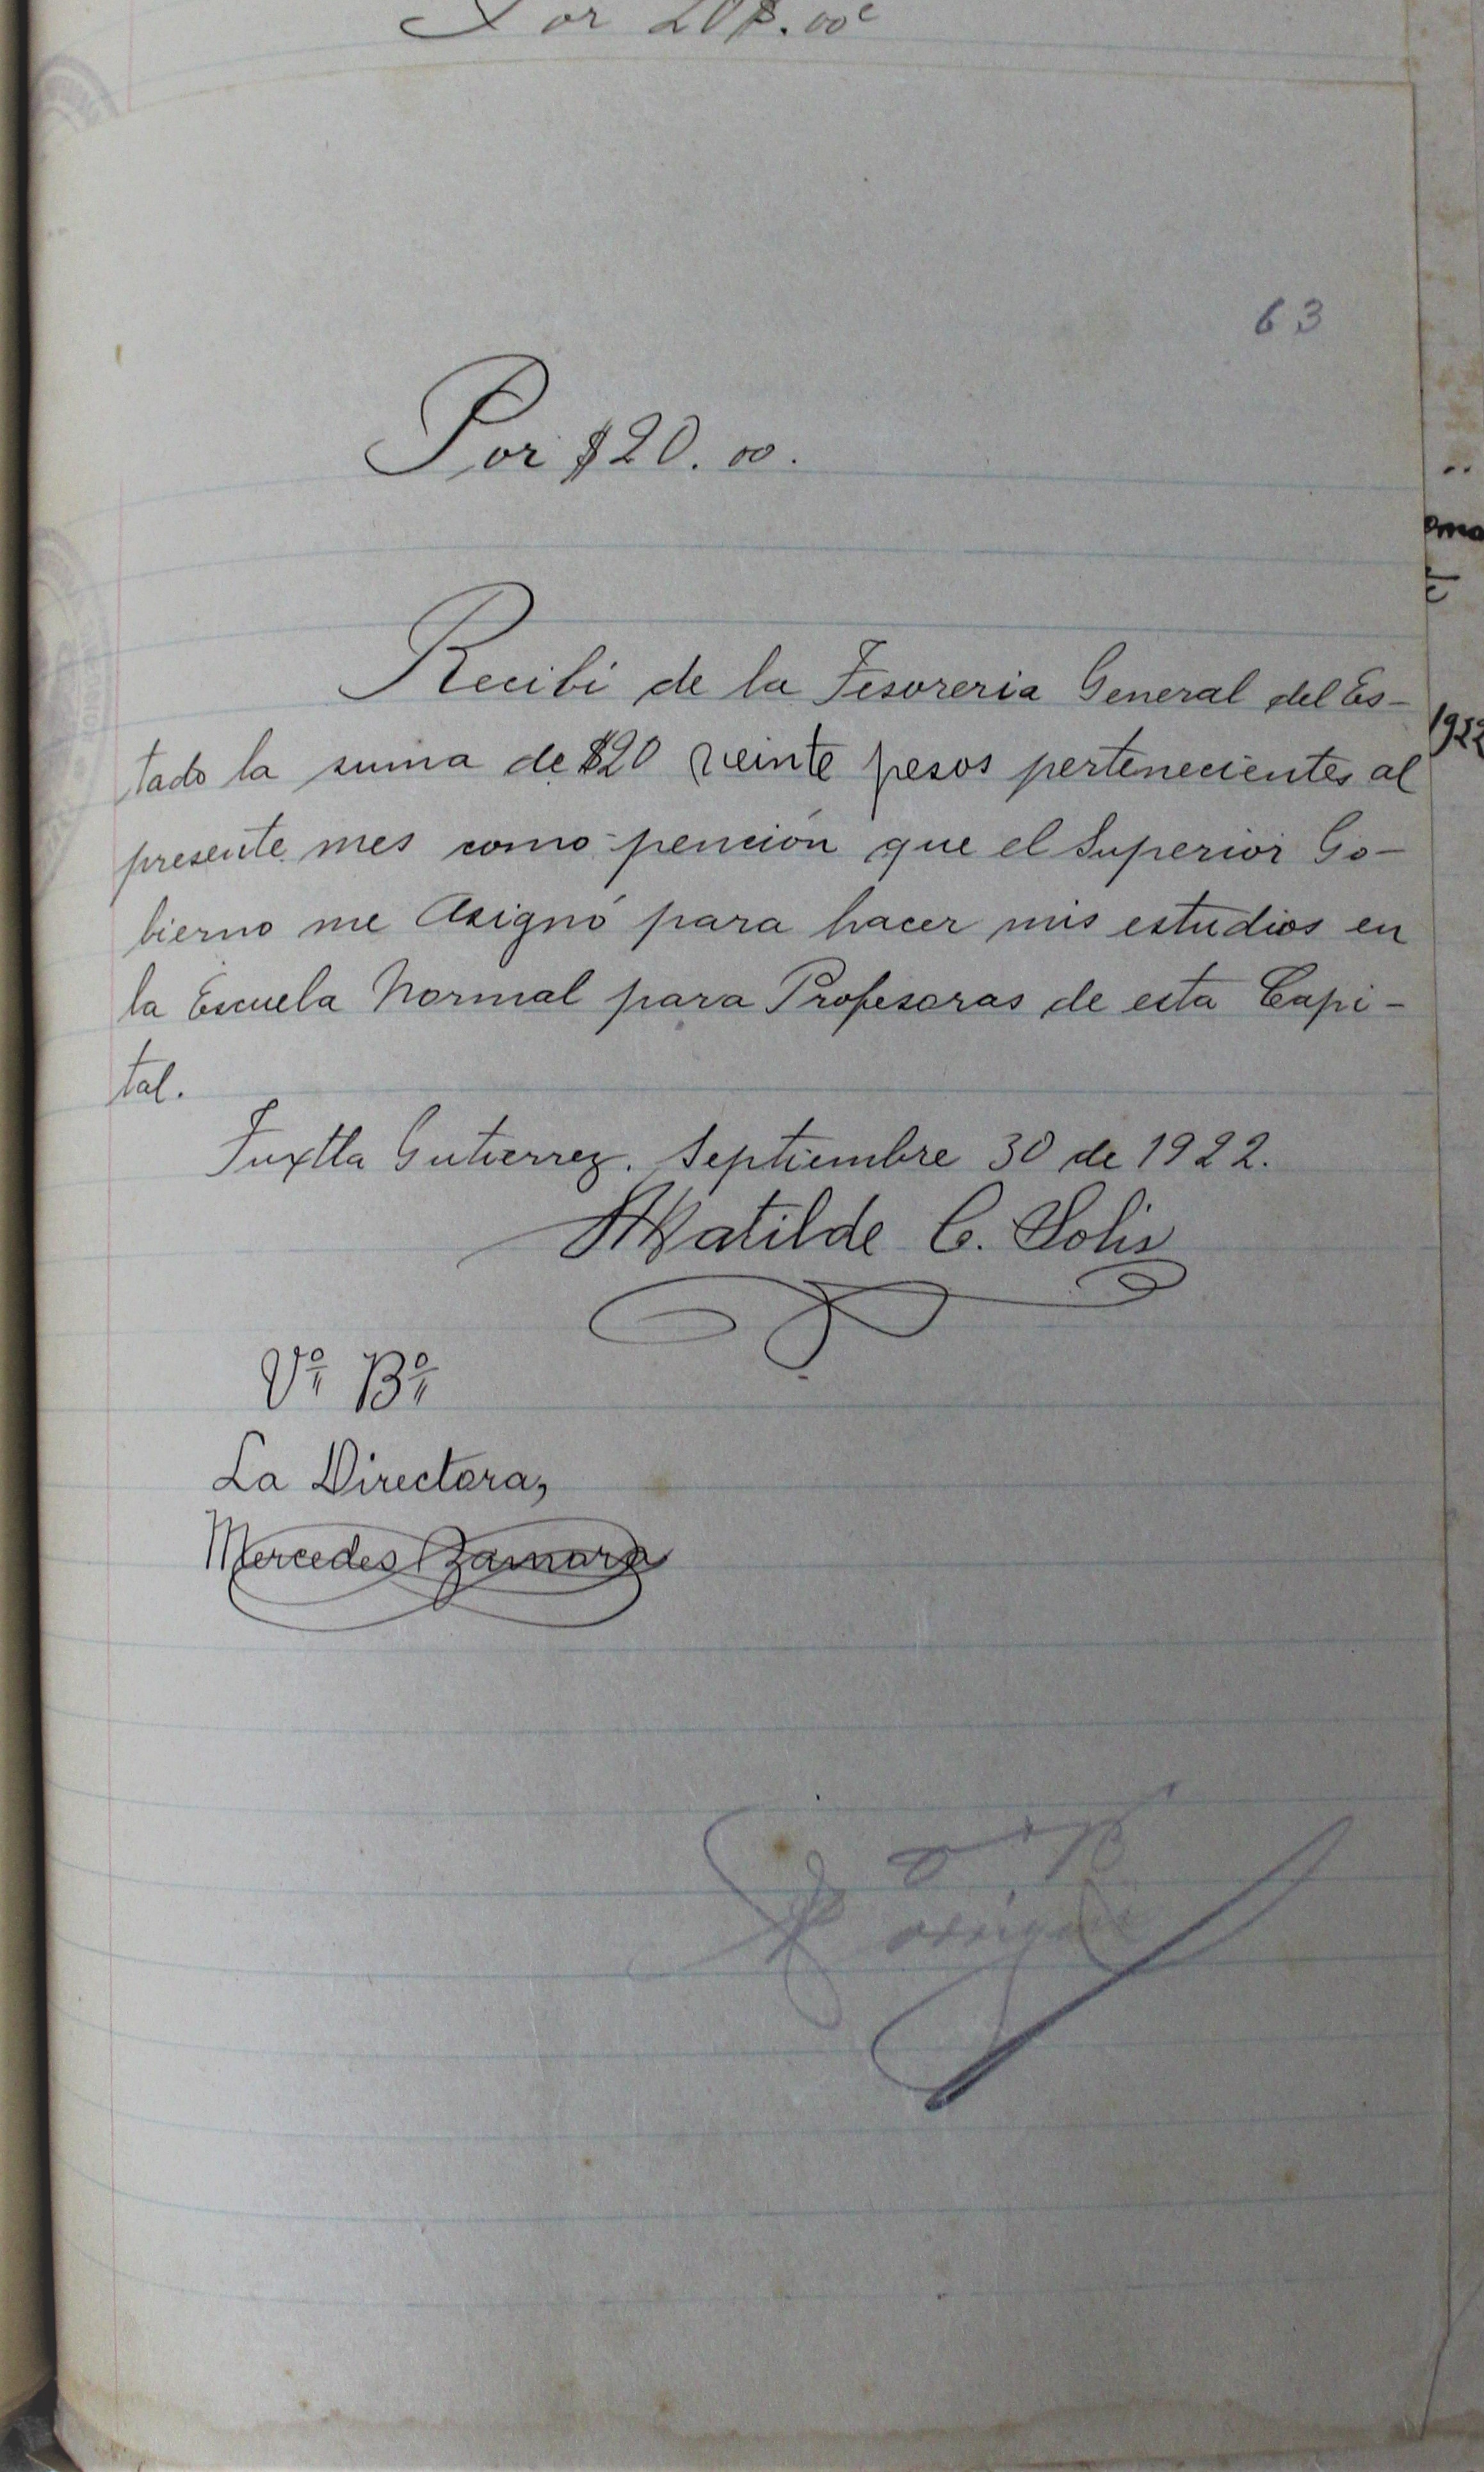 Por 20$.00c
63
Por $20.00.
Recibí de la Tesoreria General del Es-
tado la suma de $20 veinte pesos pertenecientes al
presente mes como pención que el Superior Go-
bierno me Asignó para hacer mis estudios en
la Escuela Normal para Profesoras de esta Capi-
tal.
Tuxtla Gutierrez. Septiembre 30 de 1922.
Matilde C. Solis
Vº Bº
La Directora,
Mercedes Zamora
1922